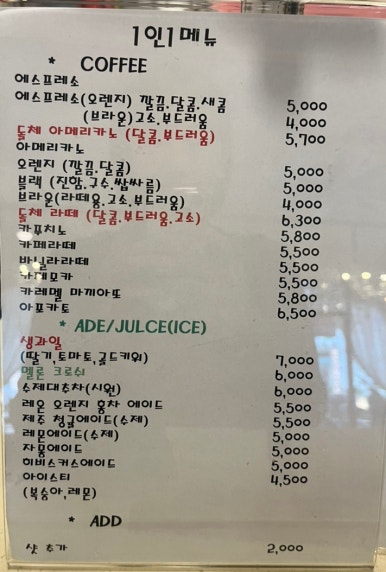 1인1메뉴
* COFFEE
에스프레소
에스프레소(오렌지) 깔끔.달콤.새콤 5,000
(브라운)고소.부드러움 4,000
돌체 아메리카노 (달콤.부드러움) 5,700
아메리카노
오렌지 (깔끔.달콤) 5,000
블랙 (진함.구수.쌉싸름) 5,000
브라운(라떼용.고소.부드러움) 4,000
돌체 라떼 (달콤.부드러움.고소) 6,300
카푸치노 5,800
카페라떼 5,500
바닐라라떼 5,500
카페모카 5,500
카레멜 마끼아또 5,800
아포카토 6,500
* ADE/JULCE(ICE)
생과일
(딸기,토마토,골드키위) 7,000
멜론 크로쉬 6,000
수제대추차(시원) 6,000
레몬 오렌지 홍차 에이드 5,500
제주 청귤에이드(수제) 5,500
레몬에이드(수제) 5,000
자몽에이드 5,000
히비스커스에이드 5,000
아이스티 4,500
(복숭아,레몬)
* ADD
샷 추가 2,000